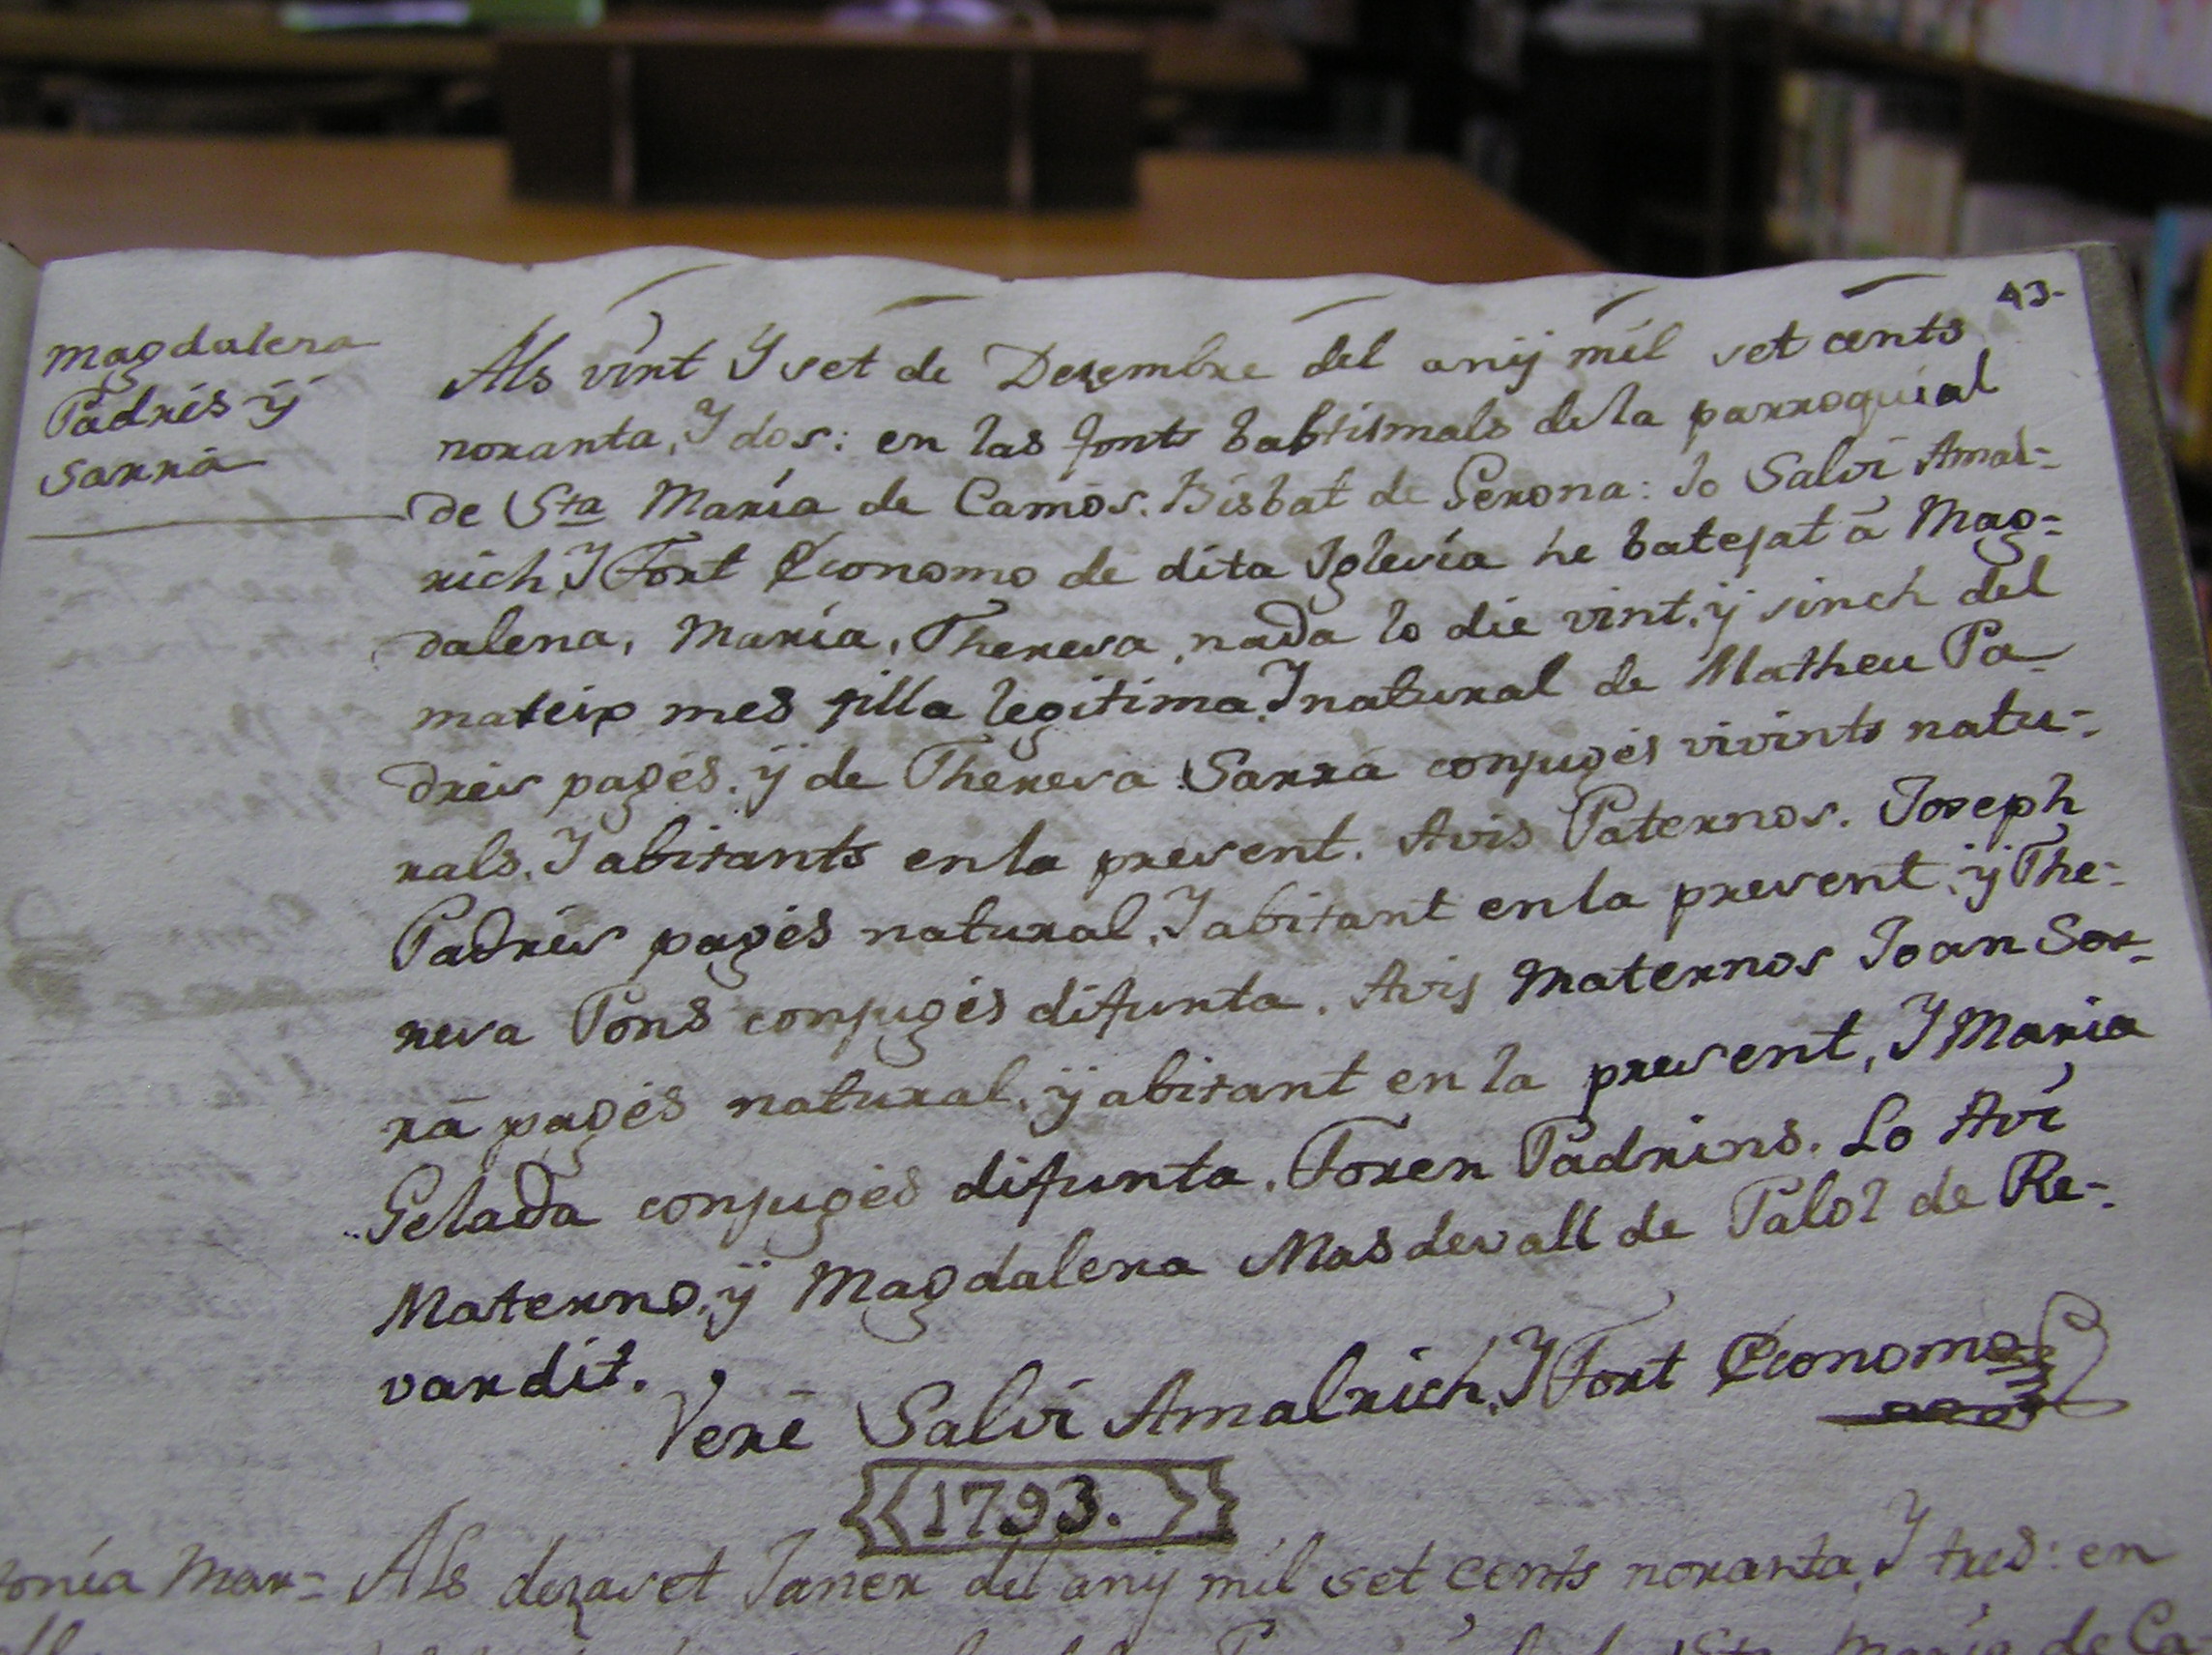 43.
Magdalena
Padrés ÿ
Sarrá
Als vint Y set de Dezembre del anÿ mil set cents
noranta, Y dos: en las fonts babtismals de la parroquial
de Sta Maria de Camós. Bisbat de Gerona: Jo Salvi Amal=
rich, Y Fort Œconomo de dita Iglesia he batejat á Mag=
dalena, Maria, Theresa, nada lo die vint, ÿ sinch del
mateix mes filla legitima, Y natural de Matheu Pa-
drés pagés, ÿ de Theresa Sarrá conjugés vivints natu=
rals, Y abitants en la present. Avis Paternos. Joseph
Padrés pagés natural, Y abitant en la present, ÿ The=
resa Pons conjugés difunta. Avis Maternos Joan Sar-
rá pagés natural, ÿ abitant en la present, Y Maria
Gelada conjugés difunta. Foren Padrins. Lo Avi
Materno, ÿ Magdalena Masdevall de Palol de Re=
vardit.
Veré Salvi Amalrich, Y Fort Œconomo
1793.
onia Mar=
Als dezaset Janer del anÿ mil set cents noranta, Y tres: en
Sta Maria de Ca-